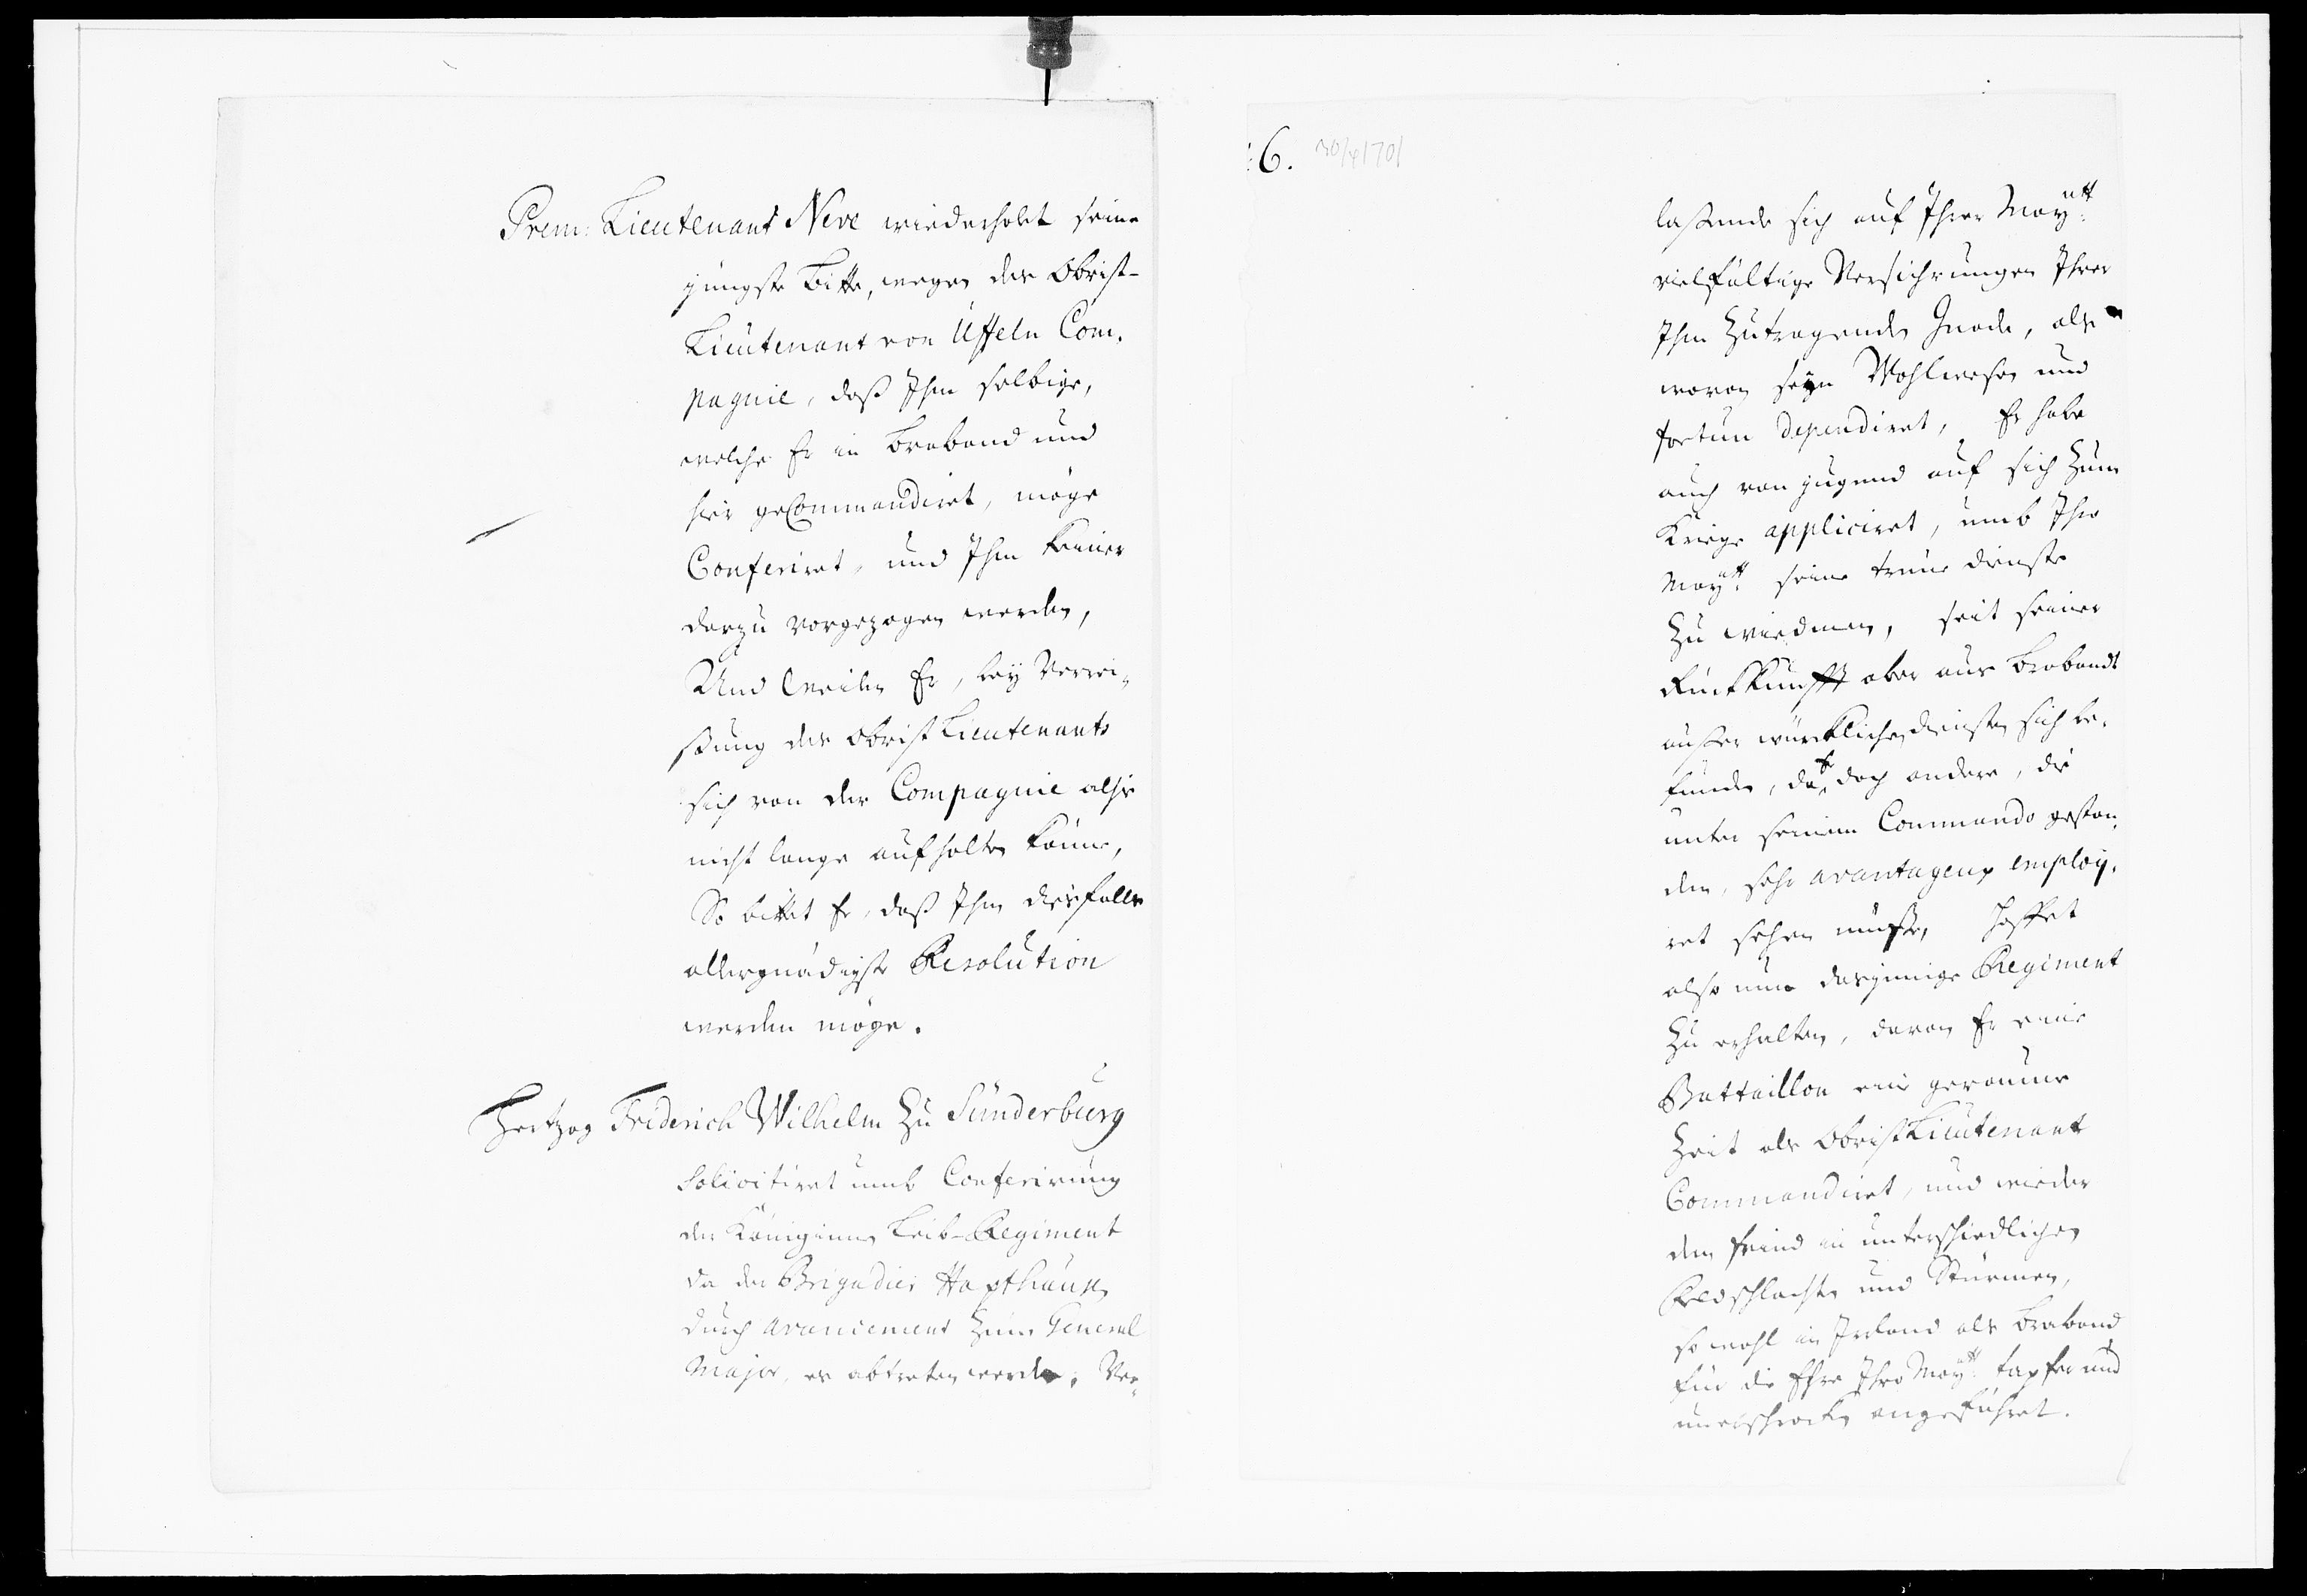 Prem: Lieutenant Neve wiederholet seine
jüngste Bitte, wegen des Obrist-
Lieutenant von Üffeln Com-
pagnie, daß Ihm selbige,
welche Er in Braband und
hier geCommandiret, möge
Conferiret, und Ihm keiner
darzu vorgezogen werden,
Und weilen Er, bey Verrei-
ßung des Obrist Lieutenants
sich von der Compagnie alhie
nicht lange aufhalten könne,
So bittet Er, daß Ihm diesfalls
allergnädigste Resolution
werden möge.
Hertzog Friderich Wilhelm zu Sünderburg
Solicitiret umb Conferirung
der Königinnen Leib-Regiment
da der Brigadier Haxthausen
durch avancement zum General
Major, es abtreten werde, Ver-
6. 30/4 1701
laßende sich auf Ihrer Mayᵗᵗ:
vielfältige Versichrungen Ihrer
Ihm zutragenden Gnade, als
wovon seyn Wohlwesen und
fortun dependiret, Er habe
auch von jugend auf sich zum
Kriege appliciret, umb Ihro
Mayᵗᵗ: seine treue dienste
zu wiedmen, seit seiner
Rückkunfft aber aus Brabandt
außer würcklichen diensten sich be-
funden, da Er doch andere, die
unter seinem Commando gestan-
den, sehr avantageux employ-
ret sehen müßen, Hoffet
also nun dasjenige Regiment
zu erhalten, davon Er eine
Battaillon eine geraume
Zeit als Obrist Lieutenant
Commandiret, und wieder
den feind in unterschiedlichen
Feldschlachten und Stürmen,
so wohl in Irrland als Braband
für die Ehre Ihro Mayᵗᵗ: tapfer und
unerschrocken angeführet.